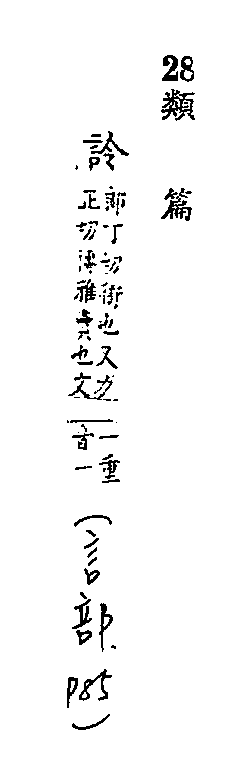 28類 篇
詅
郎丁切衒也又力
正切博雅賣也文
一重
音一
(言部.P85)